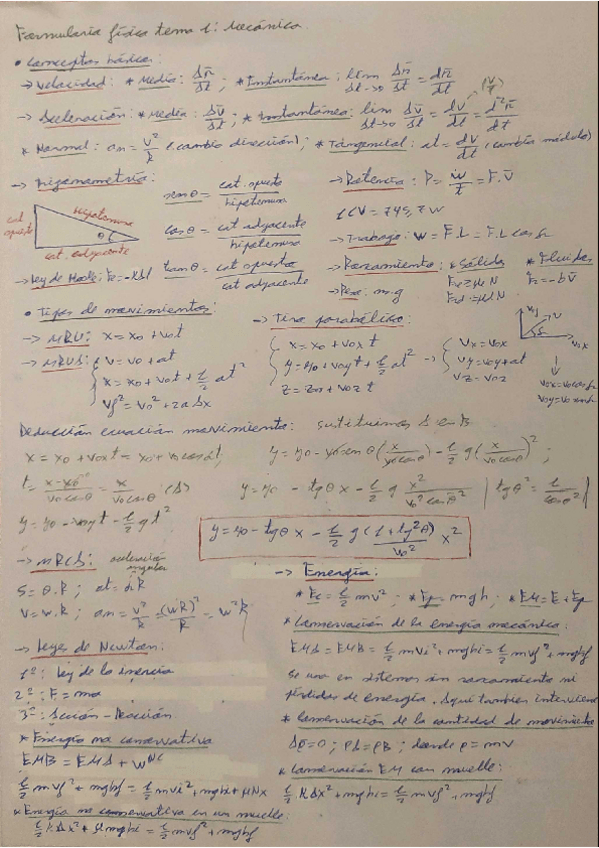 Formulario física tema 1: Mecánica.
• Conceptos básicos:
→ Velocidad: * Media: Δr̄/Δt ; * Instantánea: lim Δt→0 Δr̄/Δt = dr̄/dt
→ Aceleración: * Media: Δv̄/Δt ; * Instantánea: lim Δt→0 Δv̄/Δt = dv̄/dt = d²r̄/dt
* Normal: an = v²/R (cambio dirección) ; * Tangencial: at = dv/dt (cambia módulo)
→ Trigonometría:
cat opuesto
hipotenusa
θ
cat. adyacente
senθ = cat. opuesto/hipotenusa
cosθ = cat adyacente/hipotenusa
tanθ = cat opuesto/cat adyacente
→ Ley de Hooke: Fe = -KΔl
→ Potencia: P = w/t = F.v̄
1CV = 745,7 w
→ Trabajo: W = F.L = F.L cos
→ Rozamiento: * Sólido * Fluidos
Fre = μN Fr = -bv̄
Frd = μN
→ Peso: m.g
• Tipos de movimientos:
→ MRU: x = x0 + v0t
→ MRUA: { v = v0 + at
x = x0 + v0t + 1/2 at²
vf² = v0² + 2aΔx
→ Tiro parabólico:
{ x = x0 + v0x t
y = y0 + v0yt + 1/2 at²
z = z0 + v0z t
→ { vx = v0x
vy = v0y + at
vz = v0z
Deducción ecuación movimiento: sustituimos A en B
x = x0 + v0xt = x0 + v0cosθt;
t = x-x0/v0cosθ = x/v0cosθ (A)
y = y0 - v0yt - 1/2 gt²
y = y0 - v0senθ(x/v0cosθ) - 1/2 g(x/v0cosθ)² ;
y = y0 - tgθx - 1/2 g x²/v0²cosθ² | tgθ² = 1/cosθ² |
y = y0 - tgθ x - 1/2 g (1+tg²θ)/v0² x²
→ MRCA: aceleración angular
S = θ.R ; at = αR
v = w.R ; an = v²/R = (wR)²/R = w²R
→ Leyes de Newton:
1º: Ley de la inercia
2º: F = ma
3º: Acción - Reacción
* Energía no conservativa
EMB = EMA + W^NC
1/2 mvf² + mghf = 1/2 mvi² + mghi + μNx
* Energía no conservativa en un muelle:
1/2 k Δx² + mghi = 1/2 mvf² + mghf
→ Energía:
* Ec = 1/2 mv² ; * Ep = mgh ; * EM = E + Ep
* Conservación de la energía mecánica:
EMA = EMB = 1/2 mvi² + mghi = 1/2 mvf² + mghf
Se usa en sistemas sin rozamiento ni
pérdidas de energía. Aquí tambien interviene
* Conservación de la cantidad de movimiento
Δp = 0 ; PA = PB ; donde p = mv
* Conservación EM con muelle:
1/2 K Δx² + mghi = 1/2 mvf² + mghf